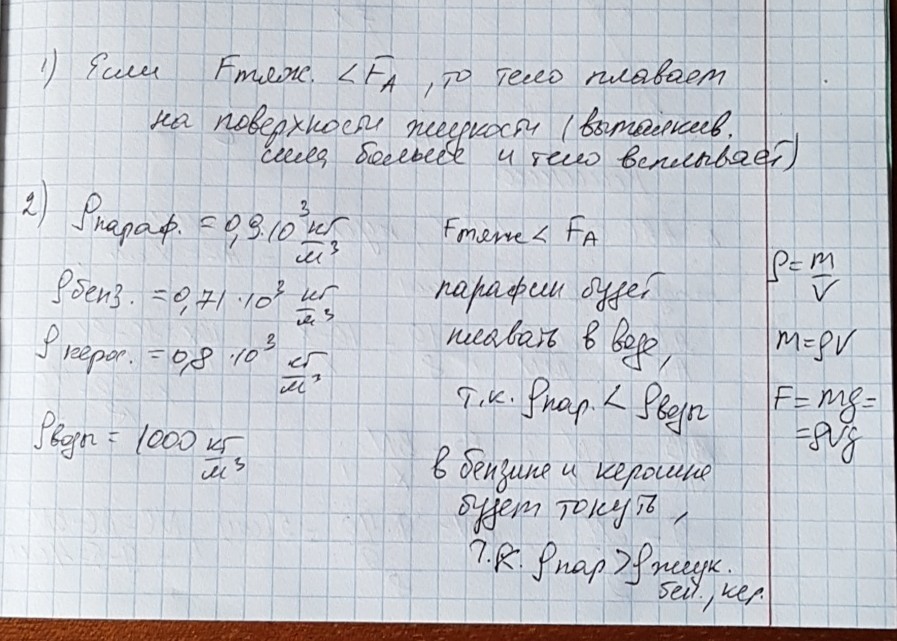 1) Если Fтяж. < FA, то тело плавает
на поверхности жидкости (выталкив.
сила больше и тело всплывает)
2) ρпараф. = 0,9·10³ кг/м³
ρбенз. = 0,71·10³ кг/м³
ρкерос. = 0,8·10³ кг/м³
ρводы = 1000 кг/м³
Fтяж < FA
парафин будет
плавать в воде,
т.к. ρпар. < ρводы
в бензине и керосине
будет тонуть,
т.к. ρпар > ρжидк.
бен., кер.
ρ = m/V
m = ρV
F = mg =
= ρVg